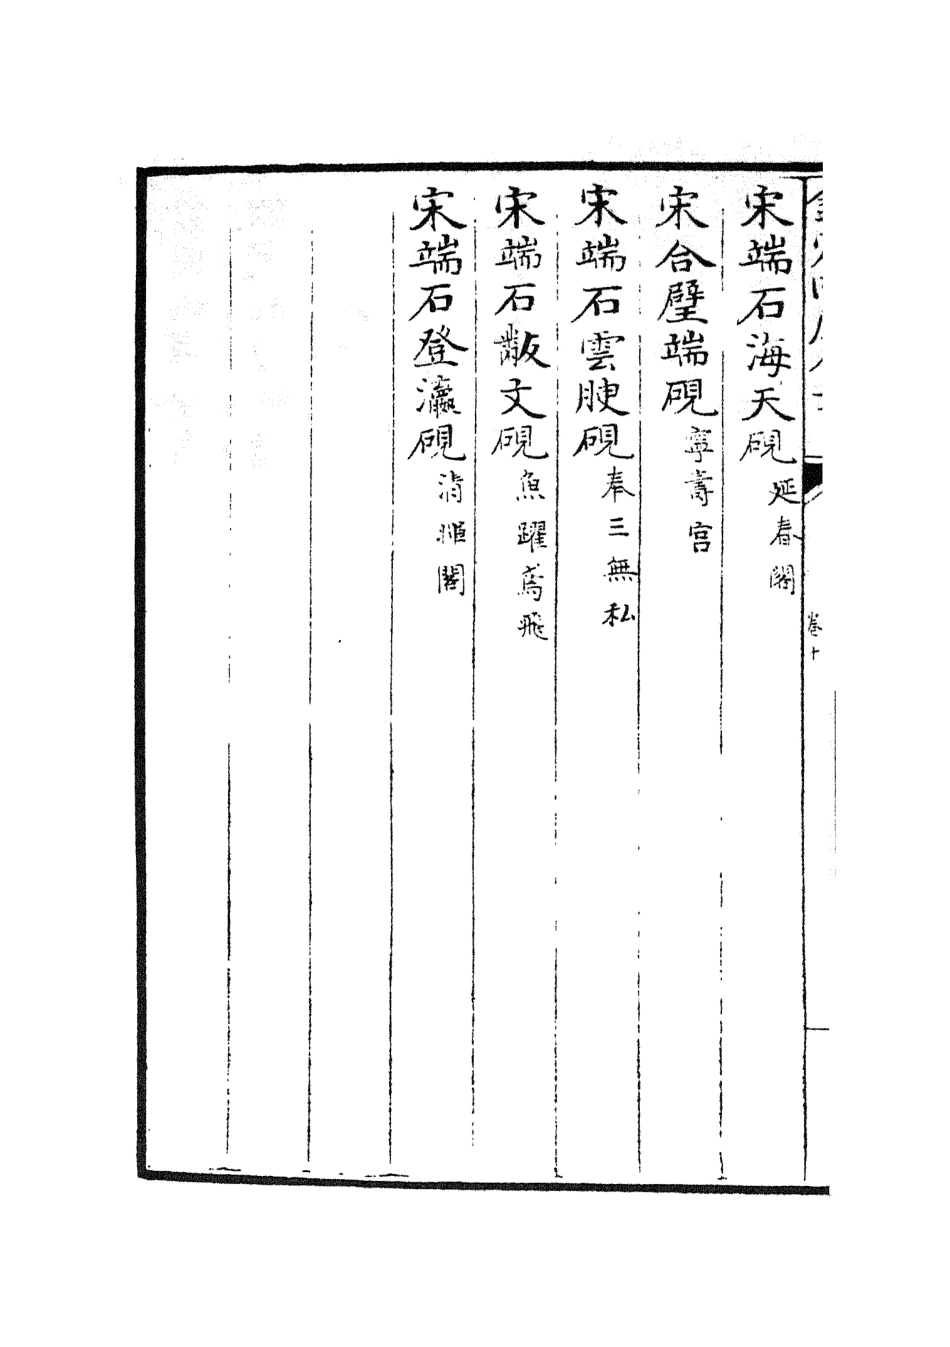 宋端石海天硯 延春閣
宋合璧端硯 寧壽宮
宋端石雲腴硯 奉三無私
宋端石黻文硯 魚躍鳶飛
宋端石登瀛硯 清暉閣
卷十